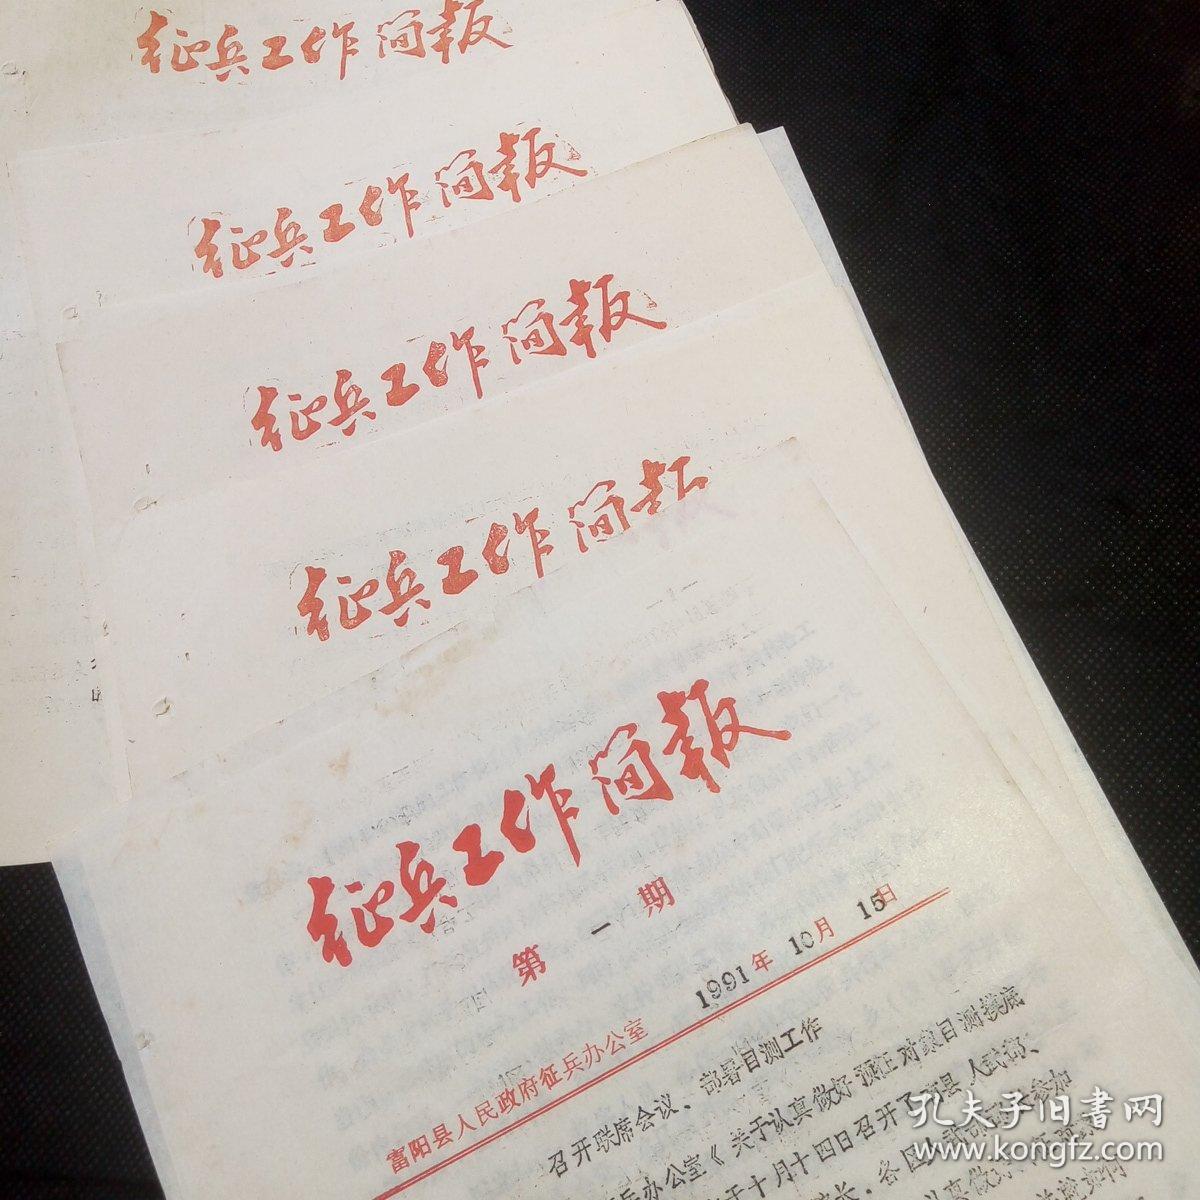 征兵工作简报
征兵工作简报
征兵工作简报
征兵工作简报
征兵工作简报
第一期
富阳县人民政府征兵办公室 1991年10月15日
召开联席会议、部署目测工作
兵办公室《关于认真做好预征对象目测摸底
于十月十四日召开了
县人民武
长、各
参加
认真做好
孔夫子旧书网
www.kongfz.com